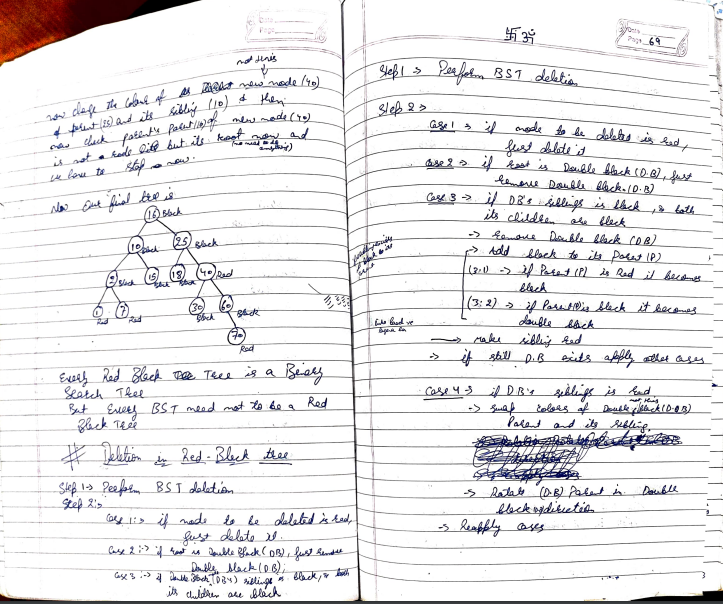 Date
Page
not this
now change the colour of new node (40)
of parent (25) and its sibling (10) & then
now check parent's parent (16) of new node (40)
is not a node but its root now and
(no need to do anything)
we have to stop now.
Now our final tree is
16 Black
10 Black 25 Black
Black 15 Black 18 Black 40 Red
1 7 30 60 Black
Red Red Black
70
Red
Every Red Black Tree is a Binary
Search Tree
But Every BST need not to be a Red
Black Tree
# Deletion in Red-Black tree
Step 1 → Perform BST deletion
Step 2 :→
Case 1 :→ if node to be deleted is red,
just delete it.
Case 2 :→ if root is Double Black (DB), just remove
Double black (D.B);
Case 3 :→ if Double Black (DB's) siblings is black, & both
its children are black
卐 ॐ
Date
Page 69
Step 1 → Perform BST deletion
Step 2 →
Case 1 → if node to be deleted is red,
just delete it
Case 2 → if root is Double black (D.B), just
remove Double black. (D.B)
Case 3 → if DB's siblings is black, & both
its children are black
→ remove Double black (DB)
→ Add black to its Parent (P)
(3.1) → if Parent (P) is Red it becomes
black
(3.2) → if Parent(P) is black it becomes
double black
→ make sibling red
→ if still D.B exists apply other cases
Case 4 → if DB's siblings is Red
not this
→ swap colors of Double black (D.B)
Parent and its sibling.
→ Rotate (D.B) Parent in Double
black direction
→ Reapply cases